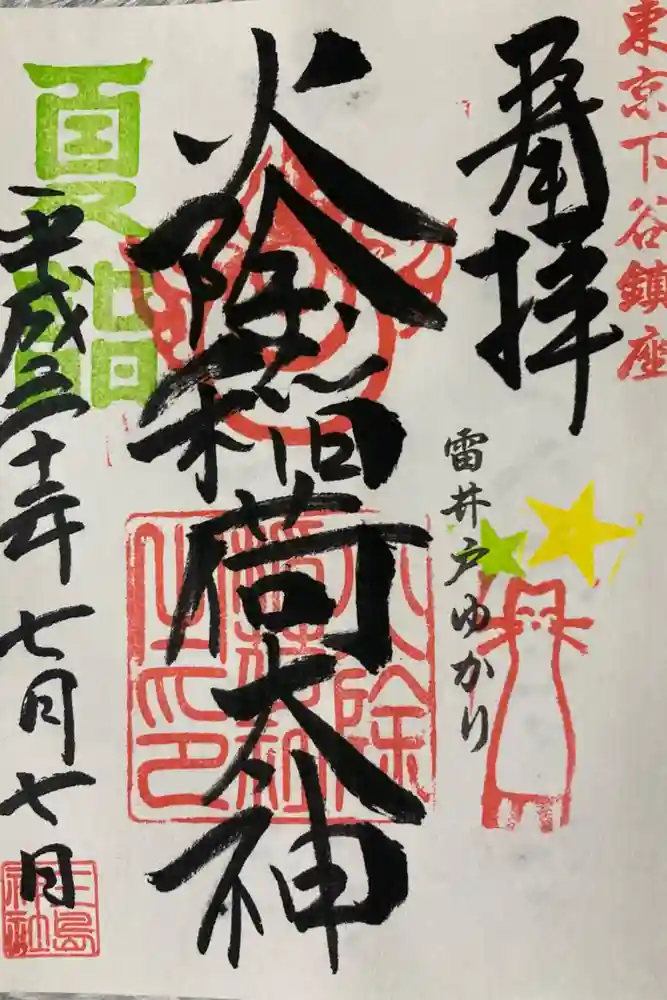 東京下谷鎮座
奉拝
雷井戸ゆかり
火除稲荷大神
夏詣
平成三十年七月七日
三島神社